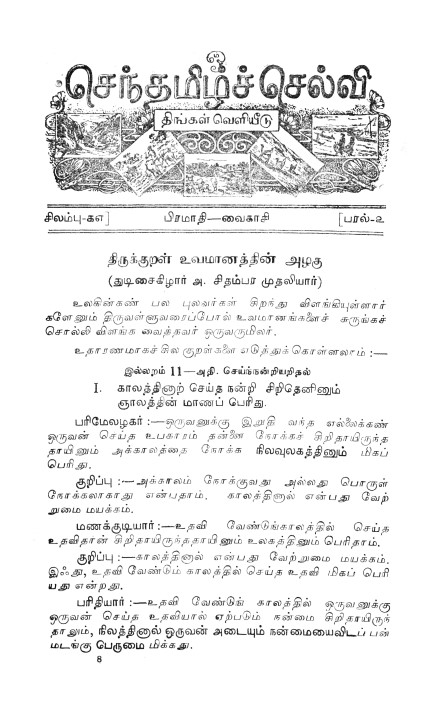 செந்தமிழ்ச்செல்வி
திங்கள் வெளியீடு
சிலம்பு-கஎ] பிரமாதி—வைகாசி [பரல்-உ
திருக்குறள் உவமானத்தின் அழகு
(துடிசைகிழார் அ. சிதம்பர முதலியார்)
உலகின்கண் பல புலவர்கள் சிறந்து விளங்கியுள்ளார்
களேனும் திருவள்ளுவரைப்போல் உவமானங்களைச் சுருங்கச்
சொல்லி விளங்க வைத்தவர் ஒருவருமிலர்.
உதாரணமாகச் சில குறள்களை எடுத்துக்கொள்ளலாம் :—
இல்லறம் 11—அதி. செய்ந்நன்றியறிதல்
I. காலத்தினாற் செய்த நன்றி சிறிதெனினும்
ஞாலத்தின் மாணப் பெரிது.
பரிமேலழகர் :—ஒருவனுக்கு இறுதி வந்த எல்லைக்கண்
ஒருவன் செய்த உபகாரம் தன்னை நோக்கச் சிறிதாயிருந்த
தாயினும் அக்காலத்தை நோக்க நிலவுலகத்தினும் மிகப்
பெரிது.
குறிப்பு :—அக்காலம் நோக்குவது அல்லது பொருள்
நோக்கலாகாது என்பதாம். காலத்தினால் என்பது வேற்
றுமை மயக்கம்.
மணக்குடியார் :—உதவி வேண்டுங்காலத்தில் செய்த
உதவிதான் சிறிதாயிருந்ததாயினும் உலகத்தினும் பெரிதாம்.
குறிப்பு :—காலத்தினால் என்பது வேற்றுமை மயக்கம்.
இஃது, உதவி வேண்டும் காலத்தில் செய்த உதவி மிகப் பெரி
யது என்றது.
பரிதியார் :—உதவி வேண்டும் காலத்தில் ஒருவனுக்கு
ஒருவன் செய்த உதவியால் ஏற்படும் நன்மை சிறிதாயிருந்
தாலும், நிலத்தினால் ஒருவன் அடையும் நன்மையைவிடப் பன்
மடங்கு பெருமை மிக்கது.
8